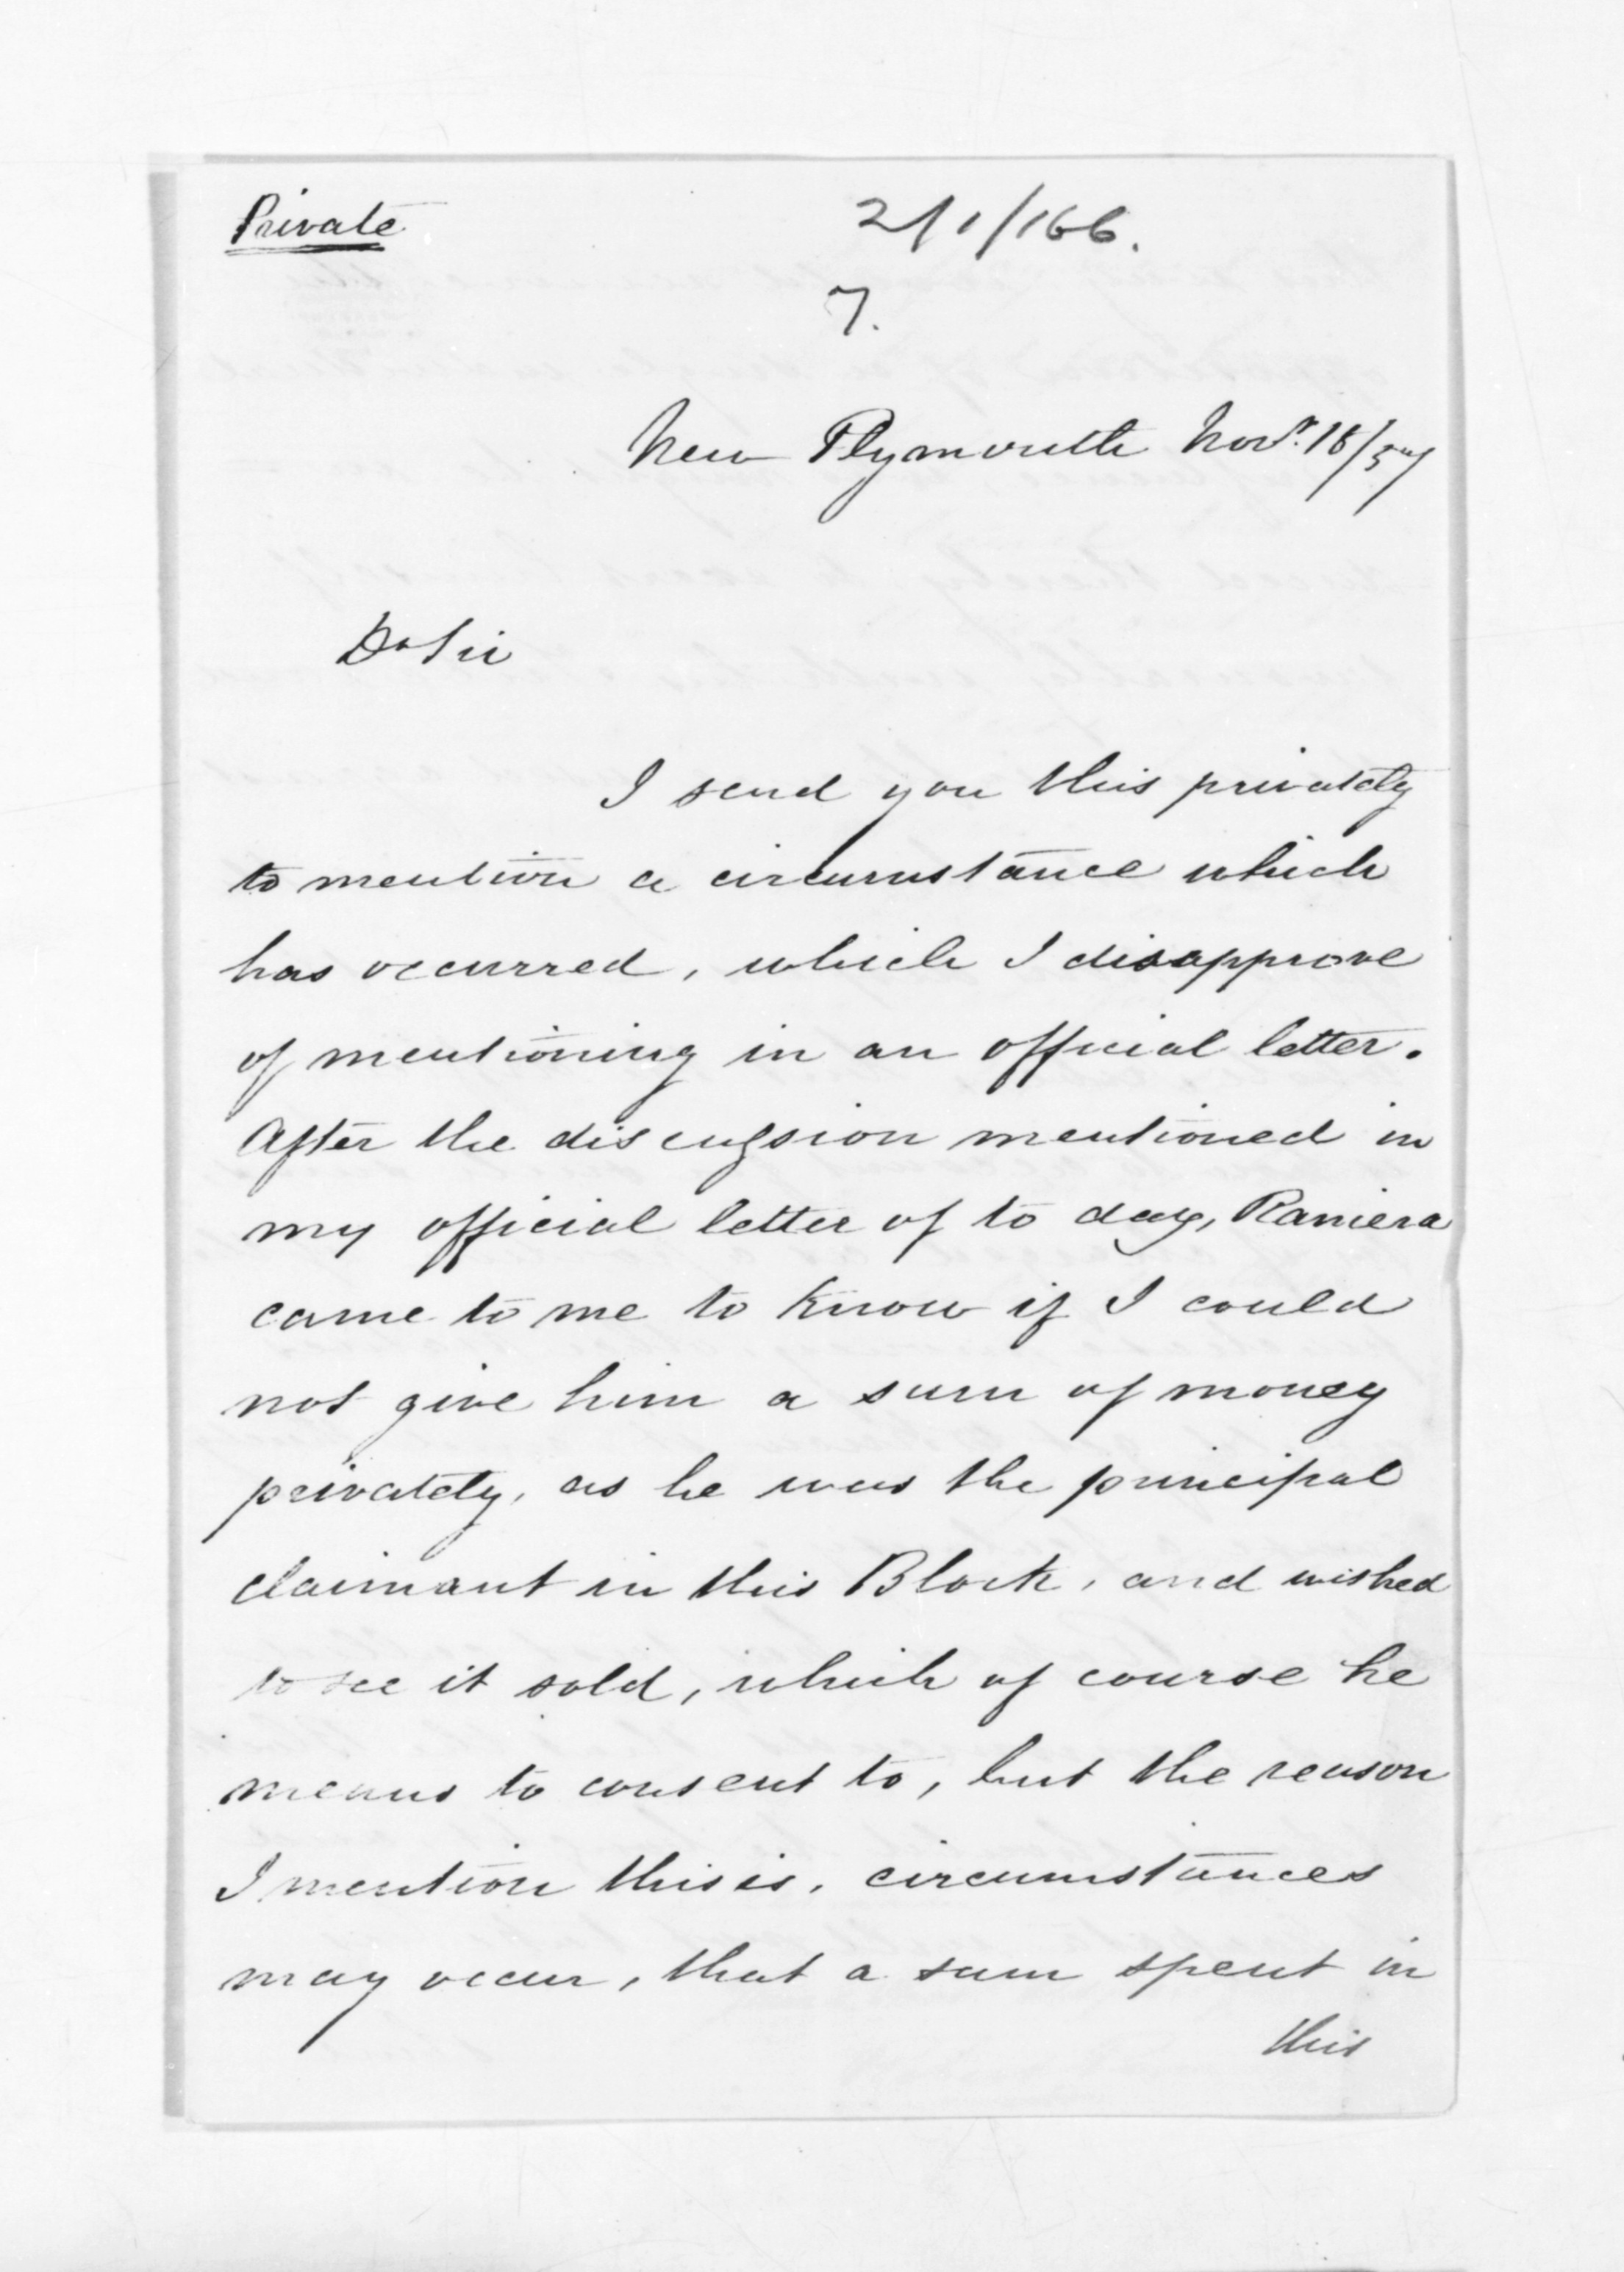 Private
2/1/166.
7.
New Plymouth Novr. 18/57
Dr Sir
I send you this privately
to mention a circumstance which
has occurred, which I disapprove
of mentioning in an official letter.
After the discussion mentioned in
my official letter of to day, Raniera
came to me to know if I could
not give him a sum of money
privately, as he was the principal
claimant in this Block, and wished
to see it sold, which of course he
means to consent to, but the reason
I mention this is, circumstances
may occur, that a sum spent in
this